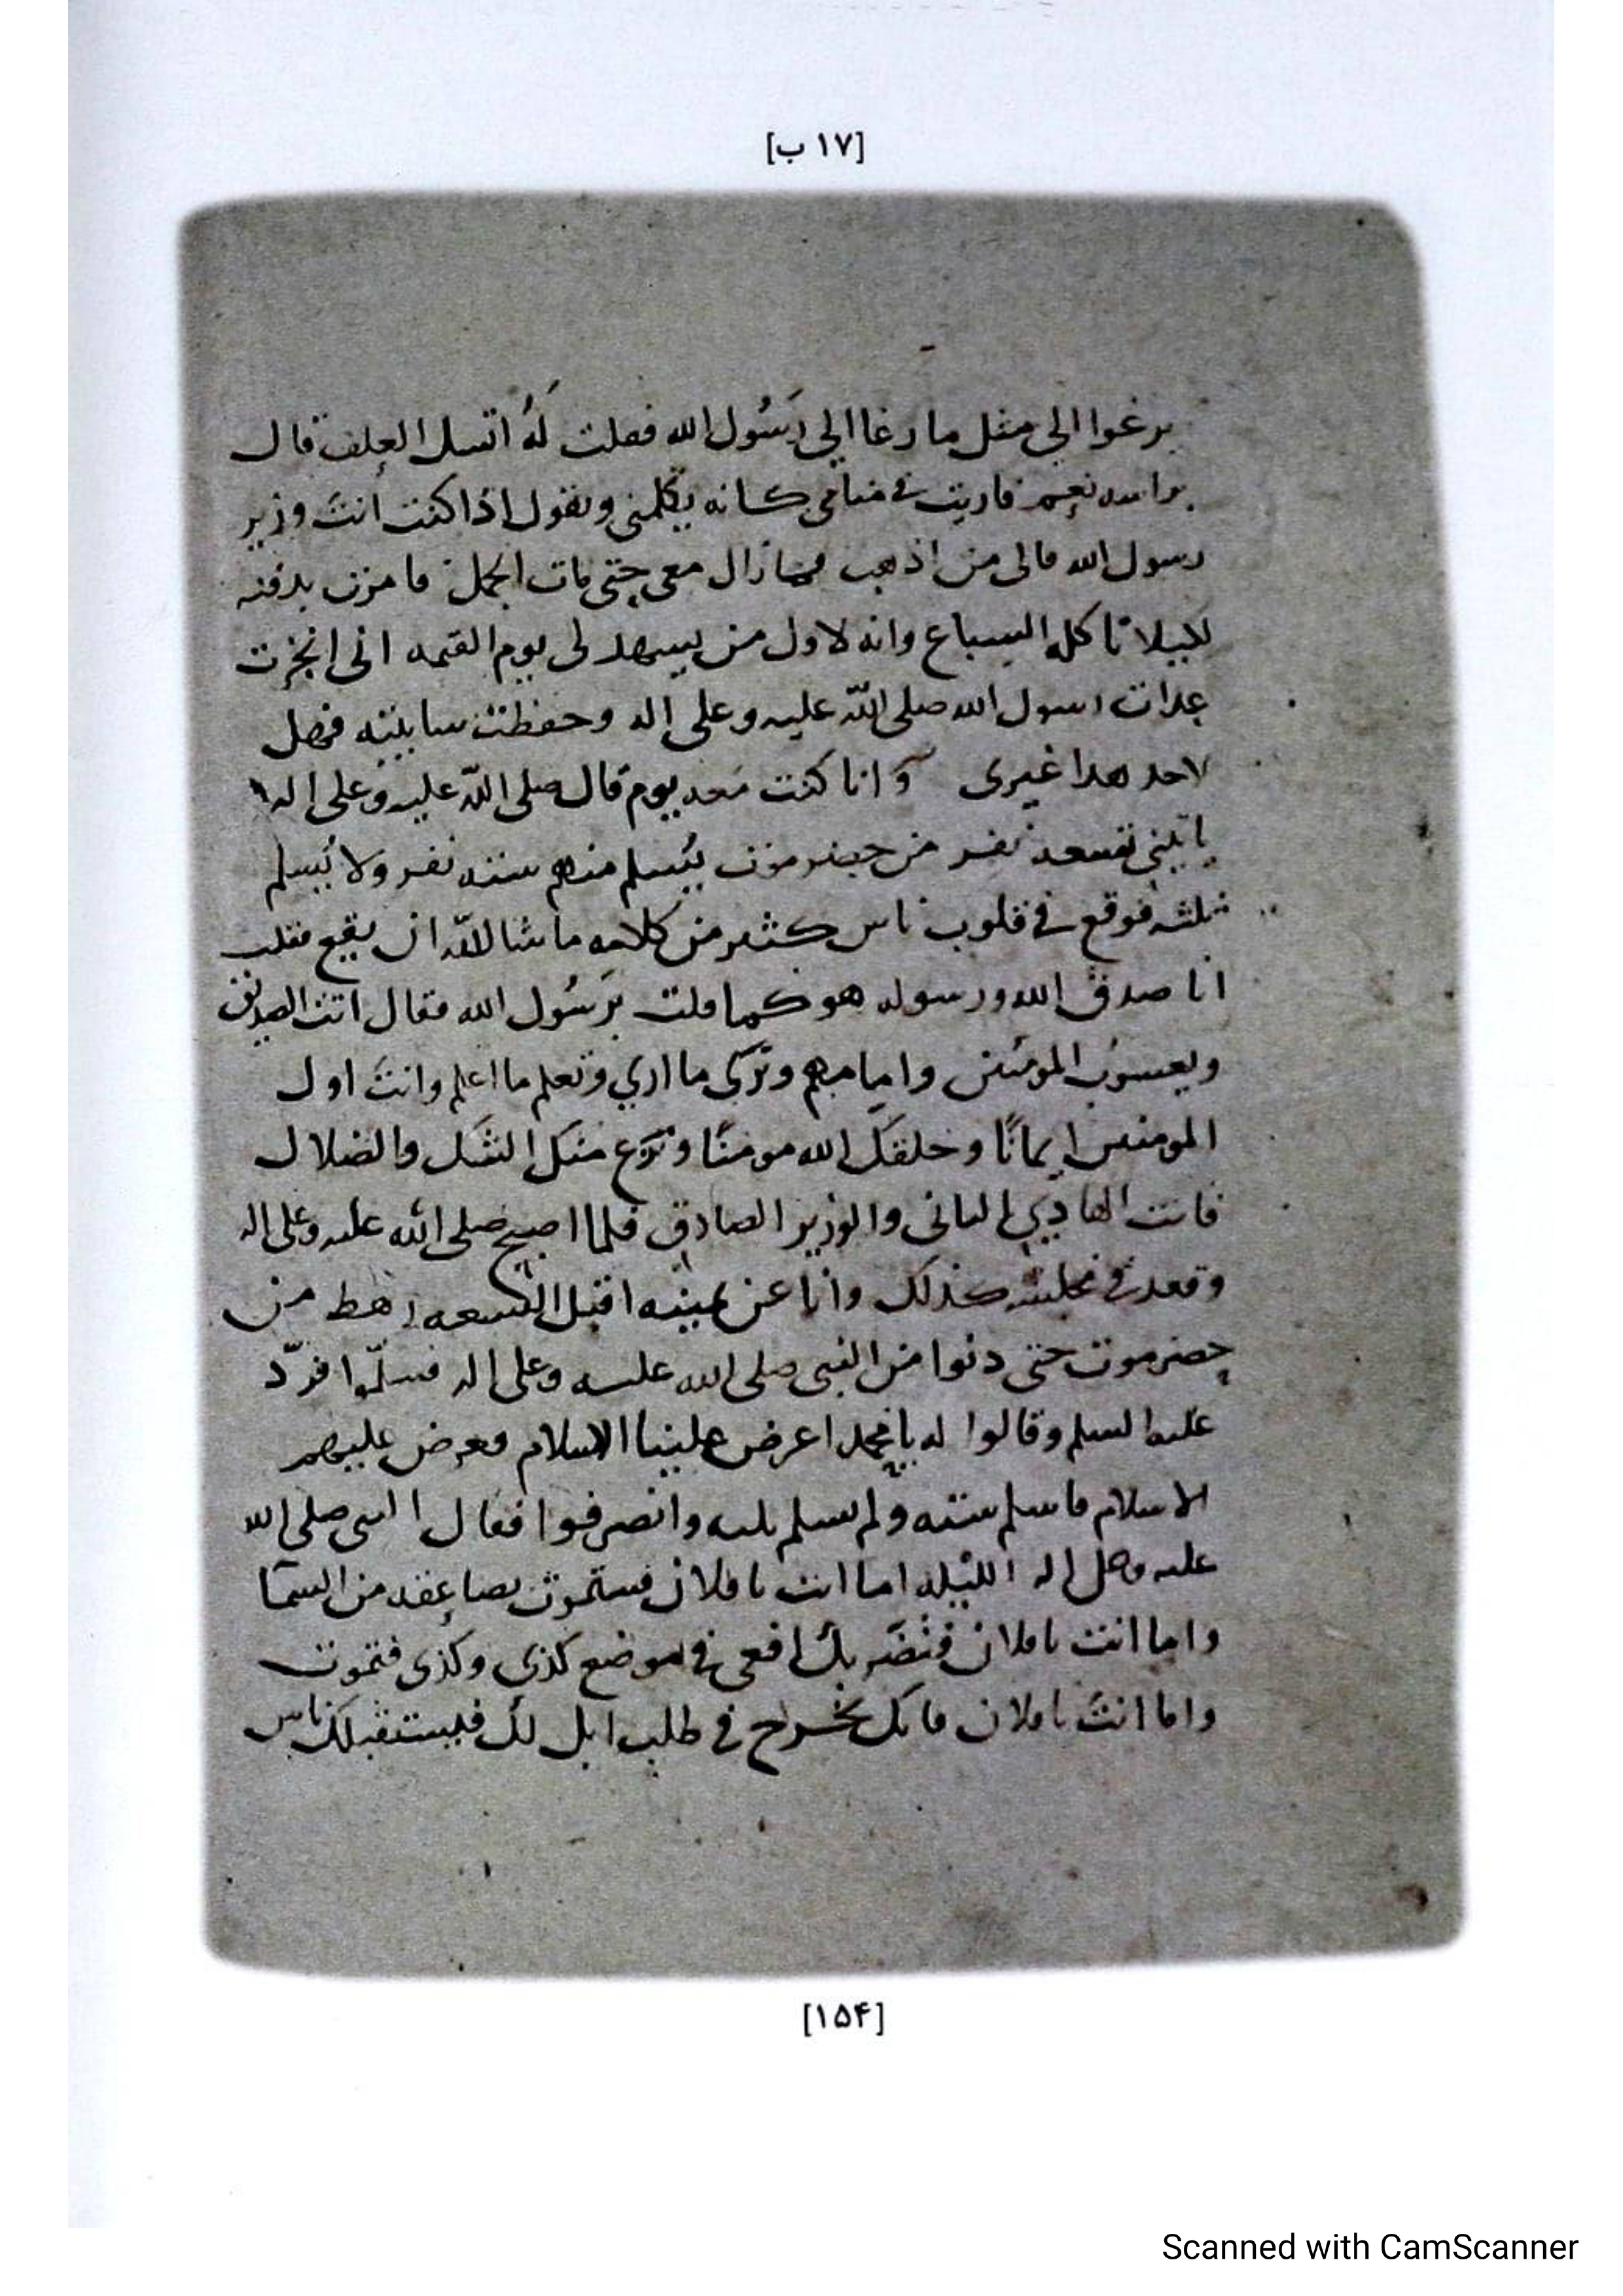 [۱۷ ب]
يرغوا الي مثل ما رغا الي رَسُول الله فقلت لَهُ اتسل العلف قال
براسه نعم فاريت في منامي كانه يكلمني ويقول اذا كنت انتَ وزير
رسول الله فالى من اذهب فما زال معي حتى مات الجمل فامرت بدفنه
لكيلا تاكله السباع وانه لاول من يسهد لى يوم القيمه انى انجزت
عدات رسول الله صلى اللّه عليه وعلى اله وحفظت فهل
لاحد هدا غيرى وَانا كنت معه يوم قال صلى اللّه عليه وعلى اله
ياتينى تسعه نفر من حضرموت يُسلم منهم سته نفر ولا يُسلم
ثلثه فوقع في قلوب ناس كثير من كلامه ما شا اللّه ان يقع فقلت
انا صدق الله ورسوله هو كما قلت يرَسُول الله فقال انت الصديق
ويعسوب المومنين وامامهم وتَرى ما اري وتعلم ما اعلم وانتَ اول
المومنين ايمانًا وخلقكَ الله مومنًا ونزع منكَ الشك والضلال
فانت الهادي الثانى والوزير الصادق فلما اصبح صلى الله عليه وعلى اله
وقعد في مجلسه كذلك وانا عن يمينه اقبل التسعه رهط من
حضرموت حتى دنوا من النبى صلى الله عليه وعلى اله فسلّموا فردّ
عليهم السلم وقالوا له يا محمد اعرض علينا الاسلام فعرض عليهم
الاسلام فاسلم سته ولم يسلم ثلثه وانصرفوا فقال النبى صلى الله
عليه وعلى اله الثلثه اما انت يا فلان فستموت بصاعقه من السمآ
واما انت يا فلان بك افعى في موضع كذى وكذى فتموت
واما انتَ يا فلان فانك تخرج في طلب ابل لك فيستقبلك ناس
[۱۵۴]
Scanned with CamScanner